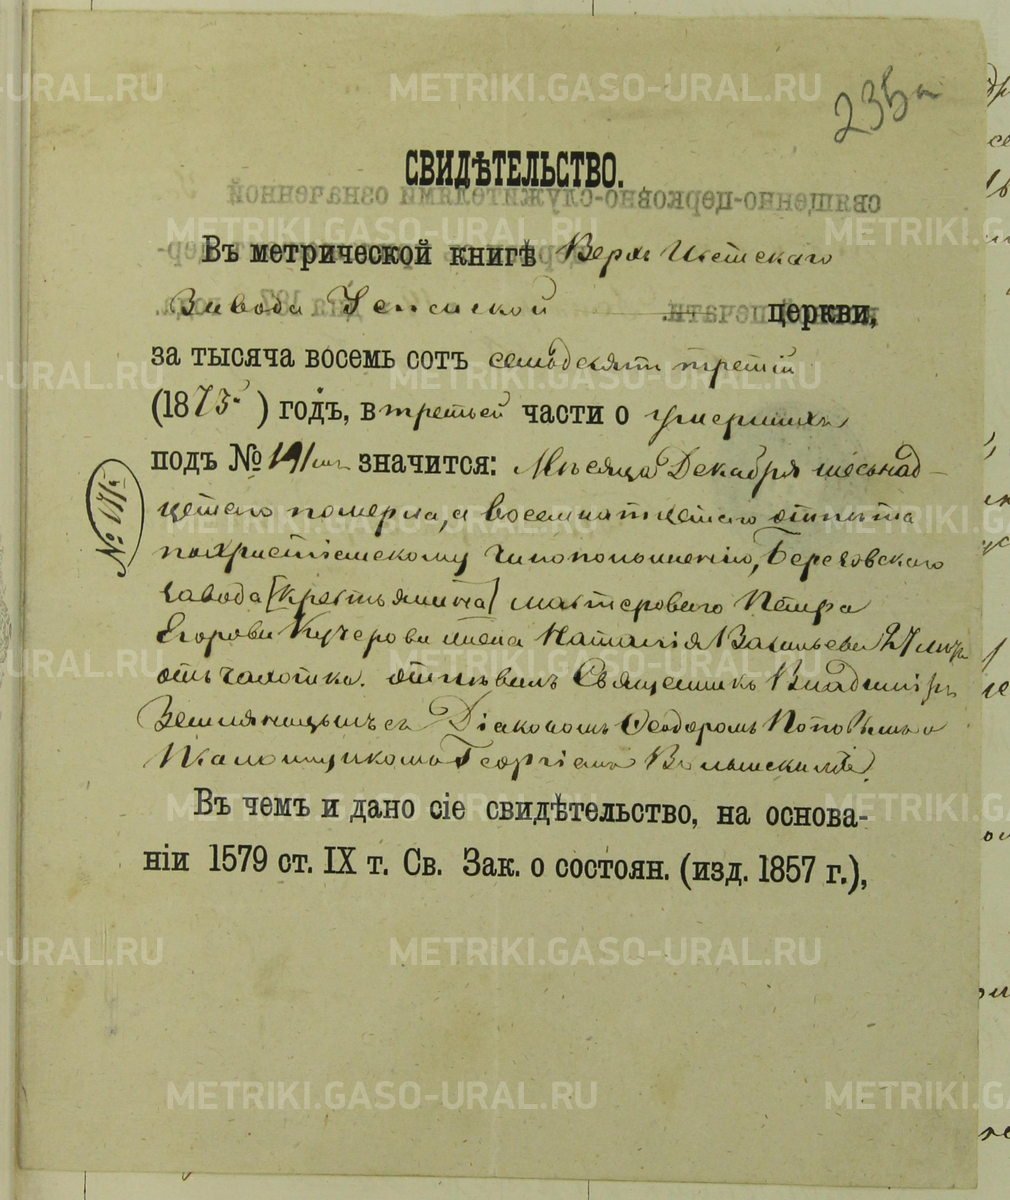 235
СВИДѢТЕЛЬСТВО.
Въ метрической книгѣ Верхъ Исетскаго
Завода Успенской церкви,
за тысяча восемь сотъ семьдесятъ третій
(1873й) годъ, в третьей части о умершихъ
подъ № 191мъ значится: Мѣсяца Декабря шеснад-
цатаго померла, а восемнатцатаго отпѣта
похристіанскому чиноположенію, Березовскаго
завода [крестьянина] мастероваго Петра
Егорова Кучерова жена Наталія Васильева 27 лѣтъ
отъ чахотки. отпѣвалъ Священникъ Владиміръ
Земляницынъ съ Діакономъ Ѳеодоромъ Поповымъ и
Псаломщикомъ Георгіемъ
Въ чемъ и дано сіе свидѣтельство, на основа-
ніи 1579 ст. IX т. Св. Зак. о состоян. (изд. 1857 г.),
METRIKI.GASO-URAL.RU